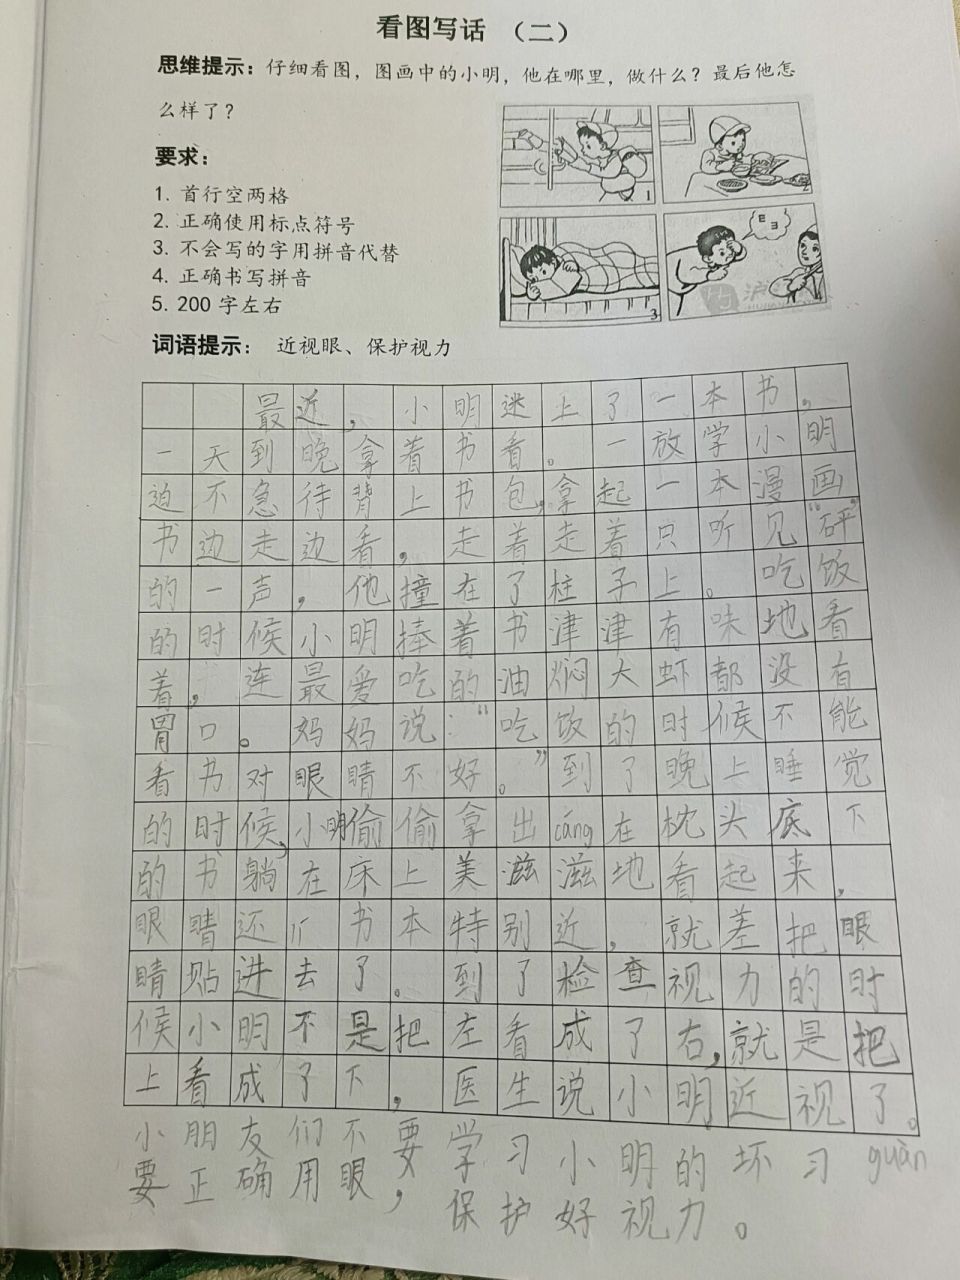 看图写话 （二）
思维提示：仔细看图，图画中的小明，他在哪里，做什么？最后他怎
么样了？
要求：
1. 首行空两格
2. 正确使用标点符号
3. 不会写的字用拼音代替
4. 正确书写拼音
5. 200 字左右
1
2
3
E
ヨ
沪
词语提示： 近视眼、保护视力
最近，小明迷上了一本书，
一天到晚拿着书看。一放学小明
迫不急待背上书包，拿起一本漫画
书边走边看，走着走着只听见“砰”
的一声，他撞在了柱子上。吃饭
的时候小明捧着书津津有味地看
着，连最爱吃的油焖大虾都没有
胃口。妈妈说：“吃饭的时候不能
看书对眼睛不好。”到了晚上睡觉
的时候，小明偷偷拿出cáng在枕头底下
的书躺在床上美滋滋地看起来，
眼睛还 书本特别近，就差把眼
睛贴进去了。到了检查视力的时
候小明不是把左看成了右，就是把
上看成了下，医生说小明近视了。
小朋友们不要学习小明的坏习guàn
要正确用眼，保护好视力。